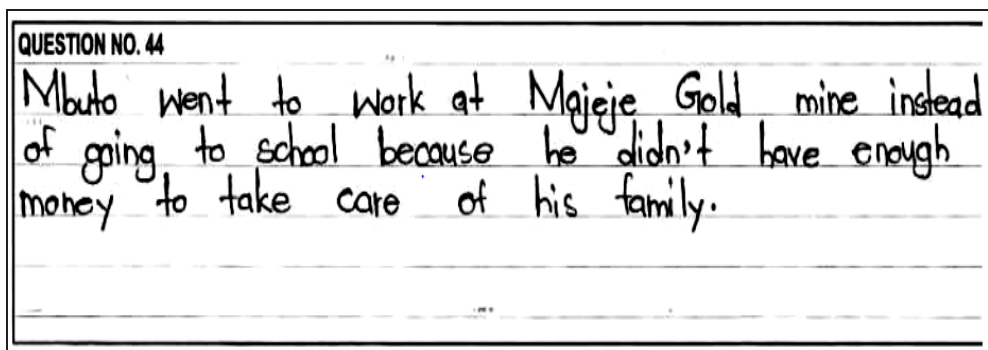 QUESTION NO. 44
Mbuto went to work at Majeje Gold mine instead
of going to school because he didn't have enough
money to take care of his family.